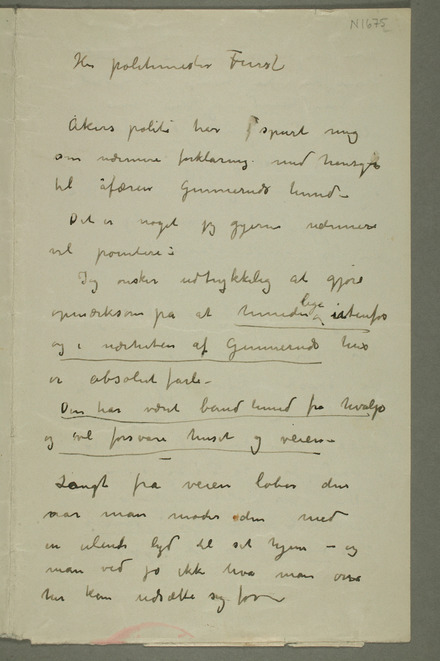 N1675
Hr politimester Furst
Akers politi har spurt mig
om nærmere forklaring med hensyn
til affæren Gunnerud's hund–
Det er noget jeg gjerne nærmere
vil pointere:
Jeg ønsker udtrykkelig at gjøre
opmærksom på at hunden lige utenfor
og i nærheten af Gunneruds hus
er absolut farlig–
Den har været båndhund fra hvalp
og vil forsvare huset og veien–
Langt fra veien løber den
naar man møder den med
en ulende lyd til sit hjem – og
man ved jo ikke hva man
her kan udsætte sig for–